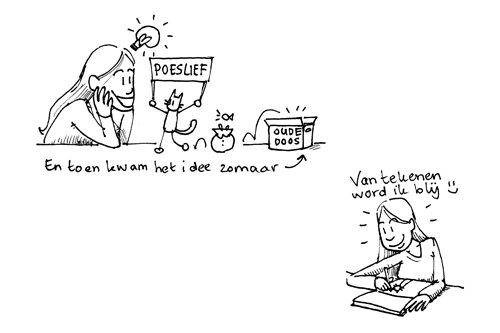 POESLIEF
OUDE
DOOS
En toen kwam het idee zomaar
Van tekenen
word ik blij